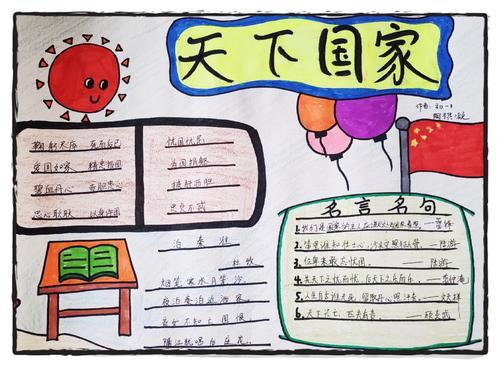 天下国家
作者：初一
鞠躬尽瘁 死而后已
爱国如家 精忠报国
碧血丹心 赤胆忠心
忠心耿耿 以身许国
忧国忧民
为国捐躯
披肝沥胆
忠贞不贰
泊秦淮
杜牧
烟笼寒水月笼沙，
夜泊秦淮近酒家
商女不知亡国恨
隔江犹唱后庭花。
名言名句
1.
2. 陆游
3. 位卑未敢忘忧国。——陆游
4. 先天下之忧而忧，后天下之乐而乐。——范仲淹
5. 人生自古谁无死，留取丹心照汗青。——文天祥
6. 天下兴亡，匹夫有责。——顾炎武